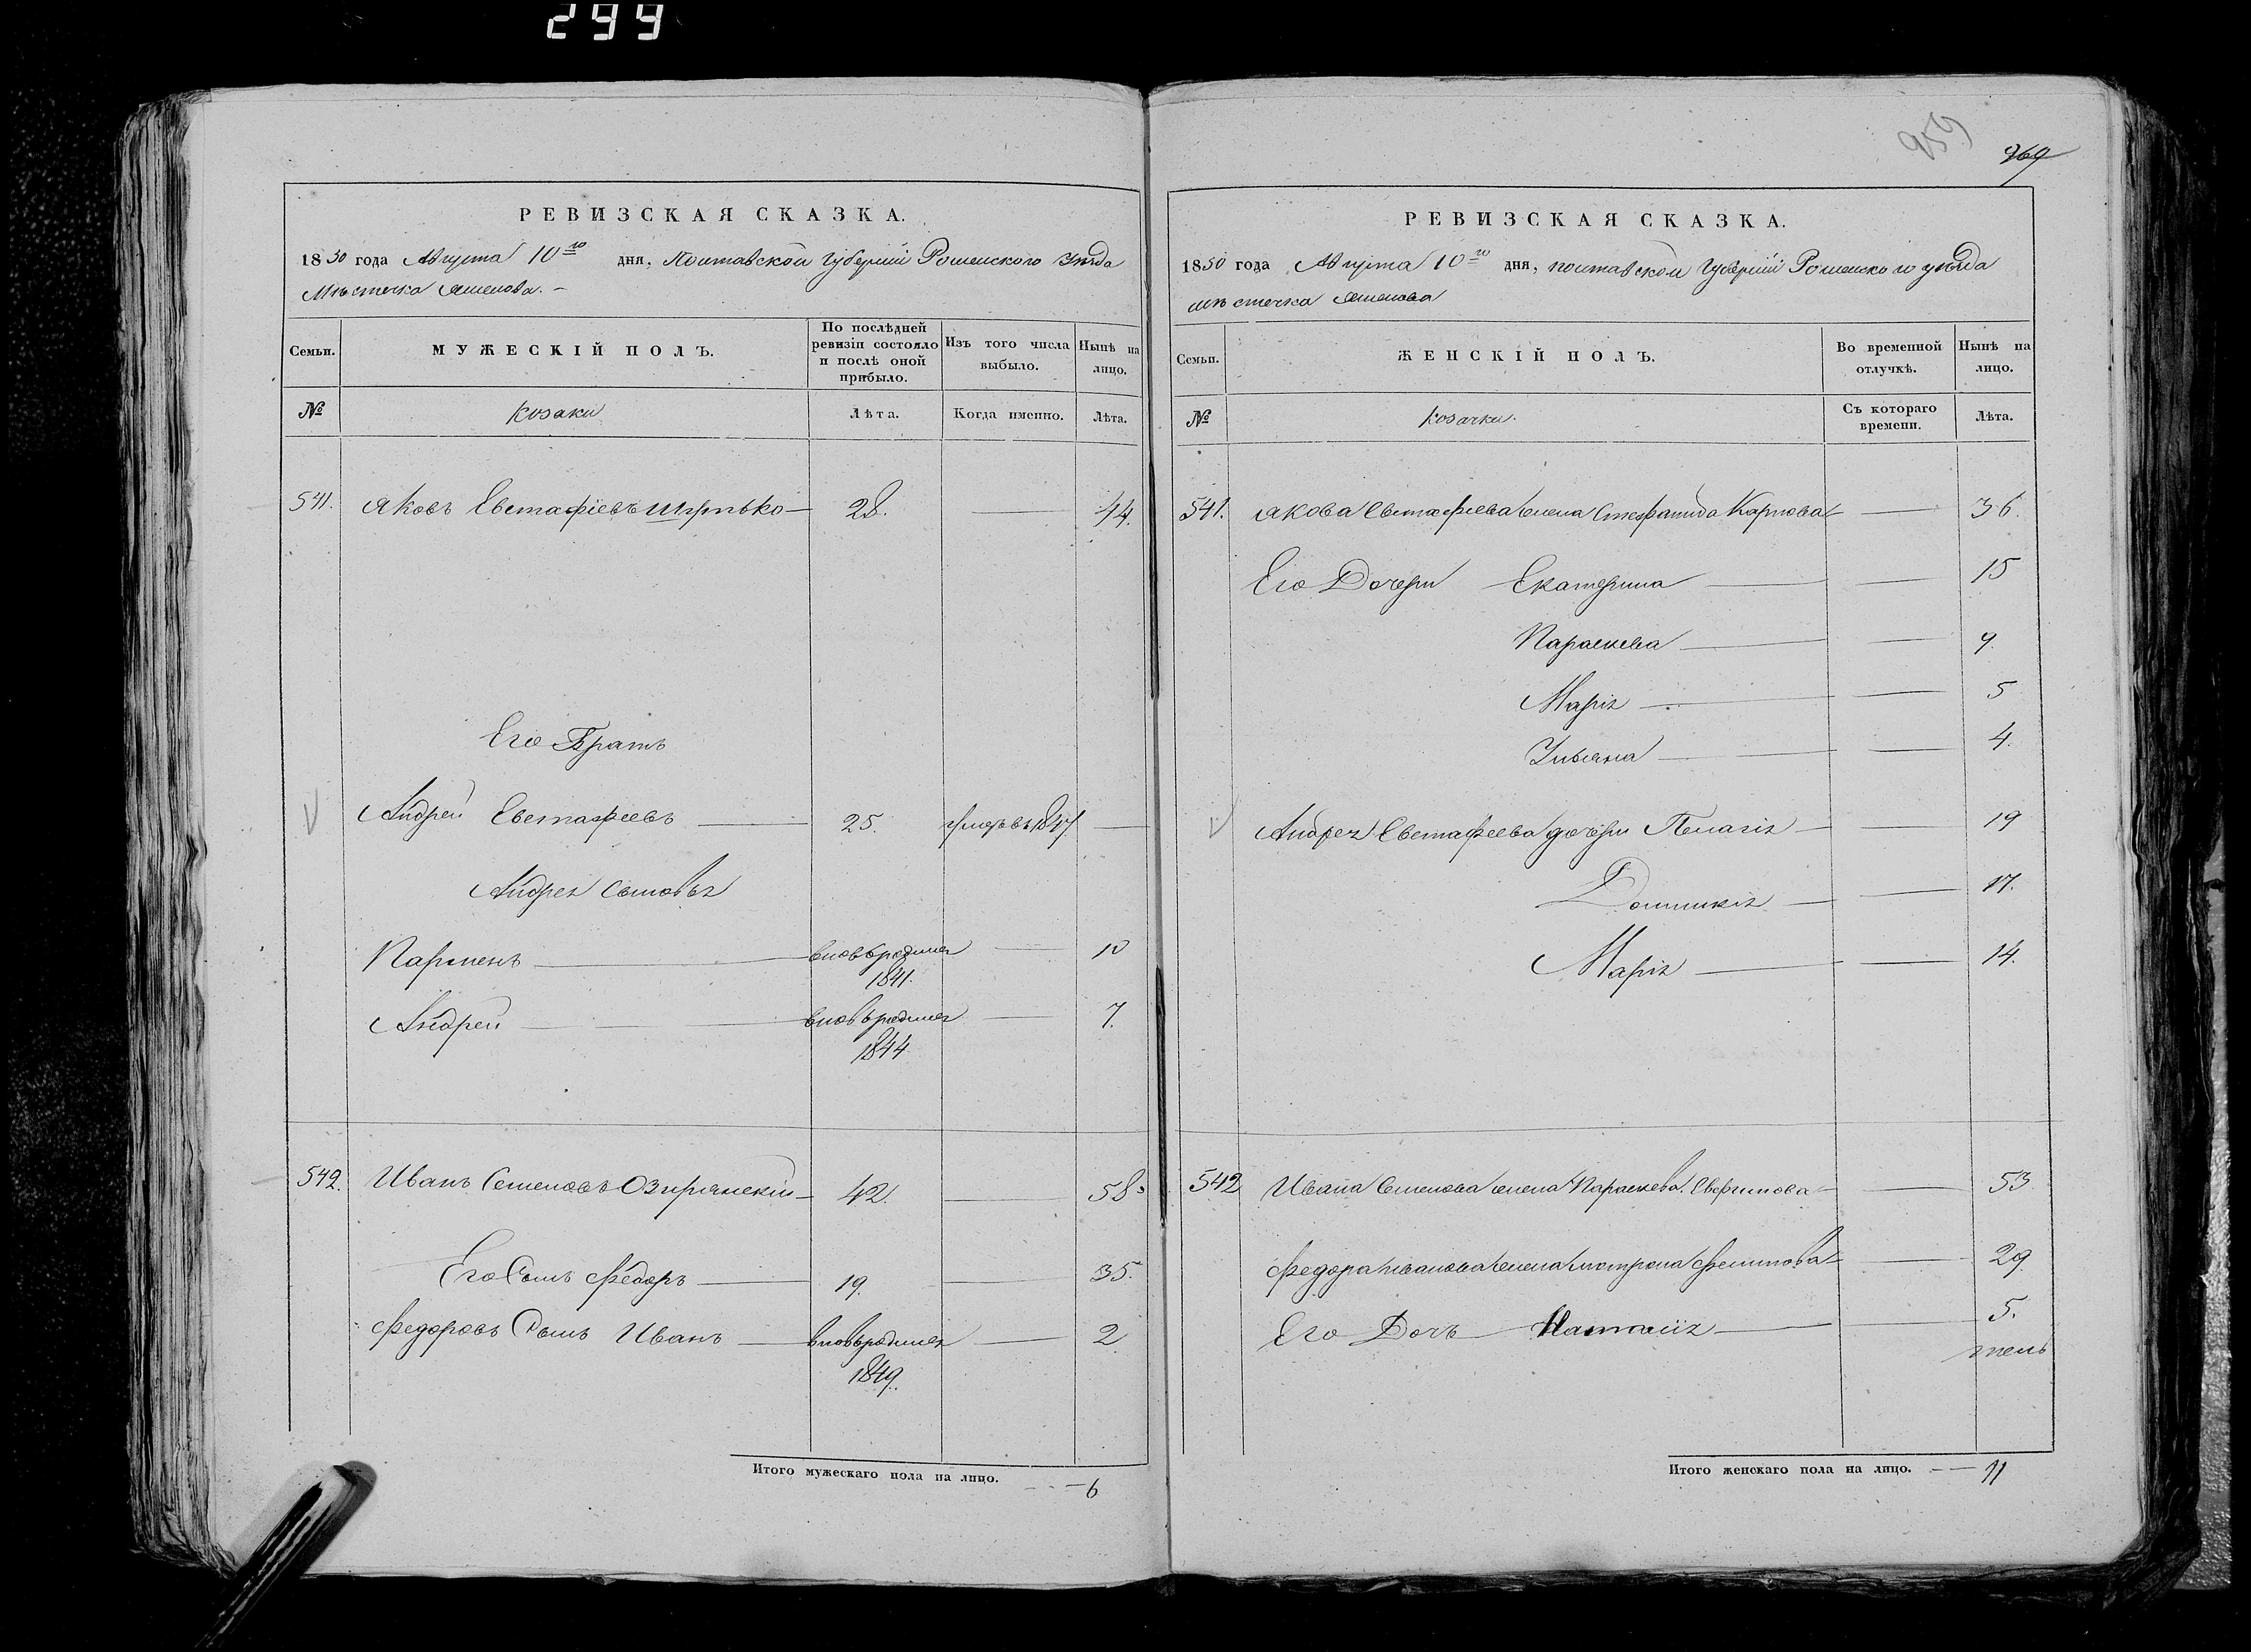 299
959
969
РЕВИЗСКАЯ СКАЗКА.
1850 года Августа 10го дня, Полтавской Губернии Роменского Уезда
Местечка
Семьи. МУЖЕСКІЙ ПОЛЪ. По послѣдней ревизіи состояло и послѣ оной прибыло. Изъ того числа выбыло. Нынѣ на лицо.
№ Козаки Лѣта. Когда именно. Лѣта.
541. Яковъ Евстафіевъ 28. 44.
Его Братъ
Андрей Евстафеевъ 25. умеръ въ 1847.
Андрея Сыновья
Парменъ вновьродился 1841. 10
Андрей вновьродился 1844 7.
542. Иванъ Семеновъ Озирянскій 42. 58.
Его Сынъ Федоръ 19. 35.
Федоровъ Сынъ Иванъ вновьродился 1849. 2
Итого мужескаго пола на лицо. 6
РЕВИЗСКАЯ СКАЗКА.
1850 года Августа 10го дня, полтавской Губерніи Роменского уезда
местечка
Семьи. ЖЕНСКІЙ ПОЛЪ. Во временной отлучкѣ. Нынѣ на лицо.
№ Козачки. Съ котораго времени. Лѣта.
541. Якова Евстафеева жена Стефанида Карпова 36.
Его Дочери Екатерина 15
Параскева 9.
Марія 5
Ульяна 4.
Андрея Евстафеева дочери Пелагія 19
Домникія 17.
Марія 14.
542 Ивана Семенова жена Параскева 53
Федора Иванова жена Мотрона Филипова 29
Его Дочь Наталія 5.
Итого женскаго пола на лицо. 11